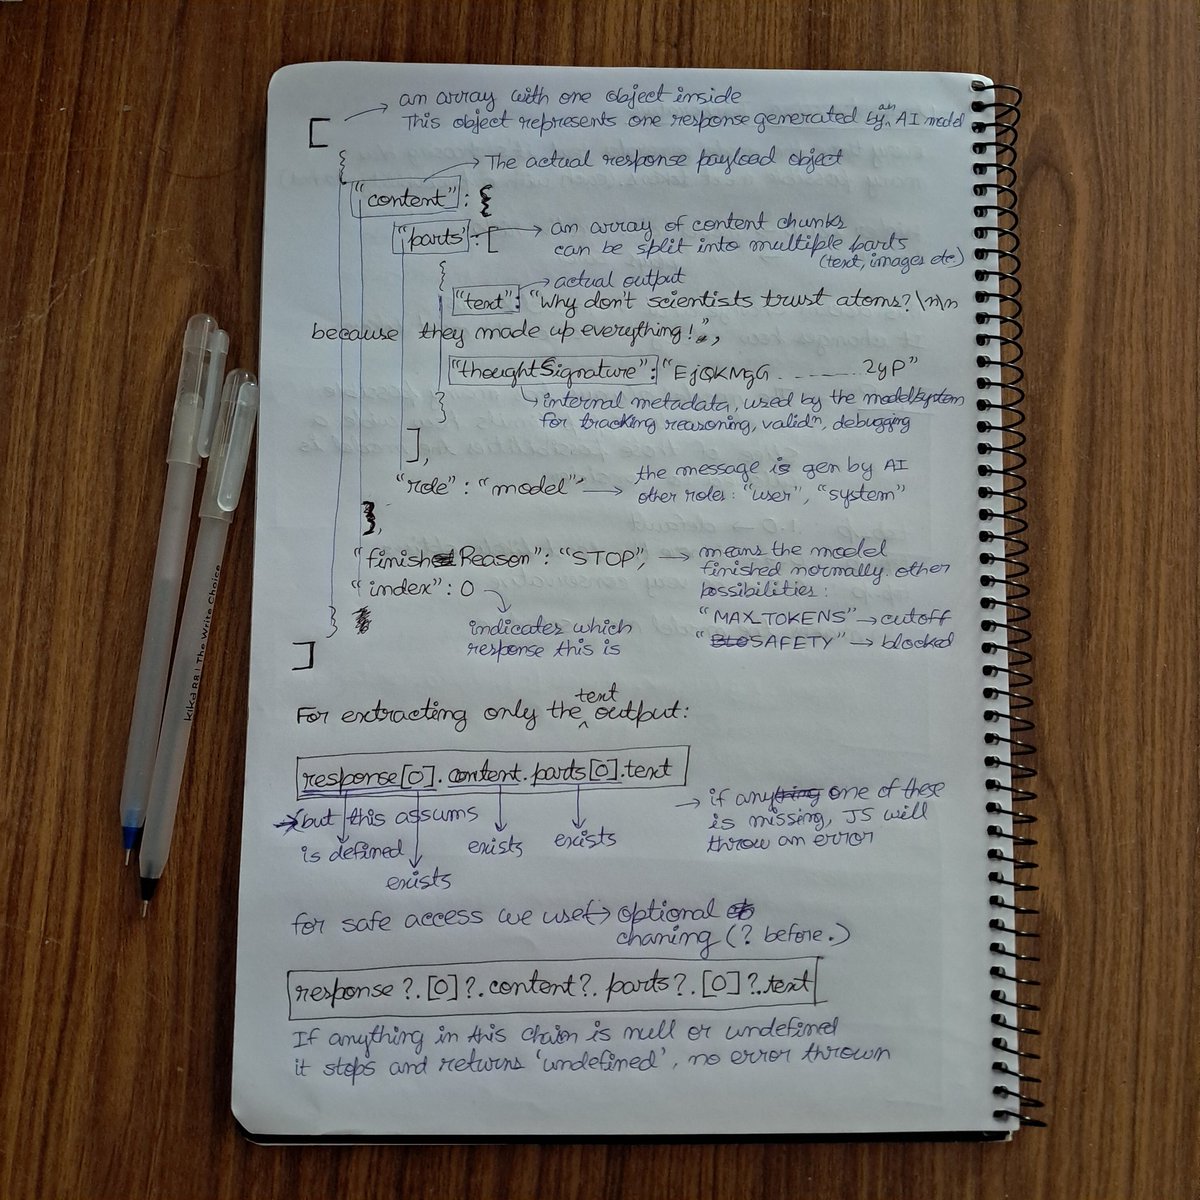 an array with one object inside
[ This object represents one response generated by an AI model
{ The actual response payload object
"content": {
"parts": [ an array of content chunks
can be split into multiple parts
(text, images etc)
{ actual output
"text": "Why don't scientists trust atoms?\n\n
because they made up everything!",
"thoughtSignature": "EjQKMgG ........ 2yP"
internal metadata, used by the model/system
for tracking reasoning, validⁿ, debugging
}
],
"role": "model" → the message is gen by AI
other roles: "user", "system"
},
"finishReason": "STOP", → means the model
finished normally. other
possibilities:
"index": 0
"MAX_TOKENS" → cutoff
} indicates which
response this is
"SAFETY" → blocked
]
For extracting only the text output:
response[0].content.parts[0].text
→ but this assumes
is defined
exists
exists
exists
→ if any one of these
is missing, JS will
throw an error
for safe access we use → optional
chaning (? before.)
response ?.[0]?.content?.parts?.[0]?.text
If anything in this chain is null or undefined
it stops and returns 'undefined', no error thrown
kikd R8 | The Write Choice